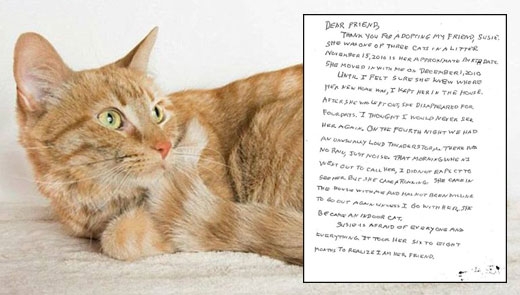 DEAR FRIEND,
THANK YOU FOR ADOPTING MY FRIEND, SUSIE.
SHE WAS ONE OF THREE CATS IN A LITTER.
NOVEMBER 15, 2010 IS HER APPROXIMATE BIRTH DATE.
SHE MOVED IN WITH ME ON DECEMBER 1, 2010
UNTIL I FELT SURE SHE KNEW WHERE
HER NEW HOME WAS, I KEPT HER IN THE HOUSE.
AFTER SHE WAS LET OUT, SHE DISAPPEARED FOR
FOUR DAYS. I THOUGHT I WOULD NEVER SEE
HER AGAIN. ON THE FOURTH NIGHT WE HAD
AN UNUSUALLY LOUD THUNDERSTORM. THERE WAS
NO RAIN, JUST NOISE. THAT MORNING WHEN I
WENT OUT TO CALL HER, I DID NOT EXPECT TO
SEE HER BUT SHE CAME RUNNING. SHE CAME IN
THE HOUSE WITH ME AND HAS NOT BEEN WILLING
TO GO OUT AGAIN UNLESS I GO WITH HER. SHE
BECAME AN INDOOR CAT.
SUSIE IS AFRAID OF EVERYONE AND
EVERYTHING. IT TOOK HER SIX TO EIGHT
MONTHS TO REALIZE I AM HER FRIEND.